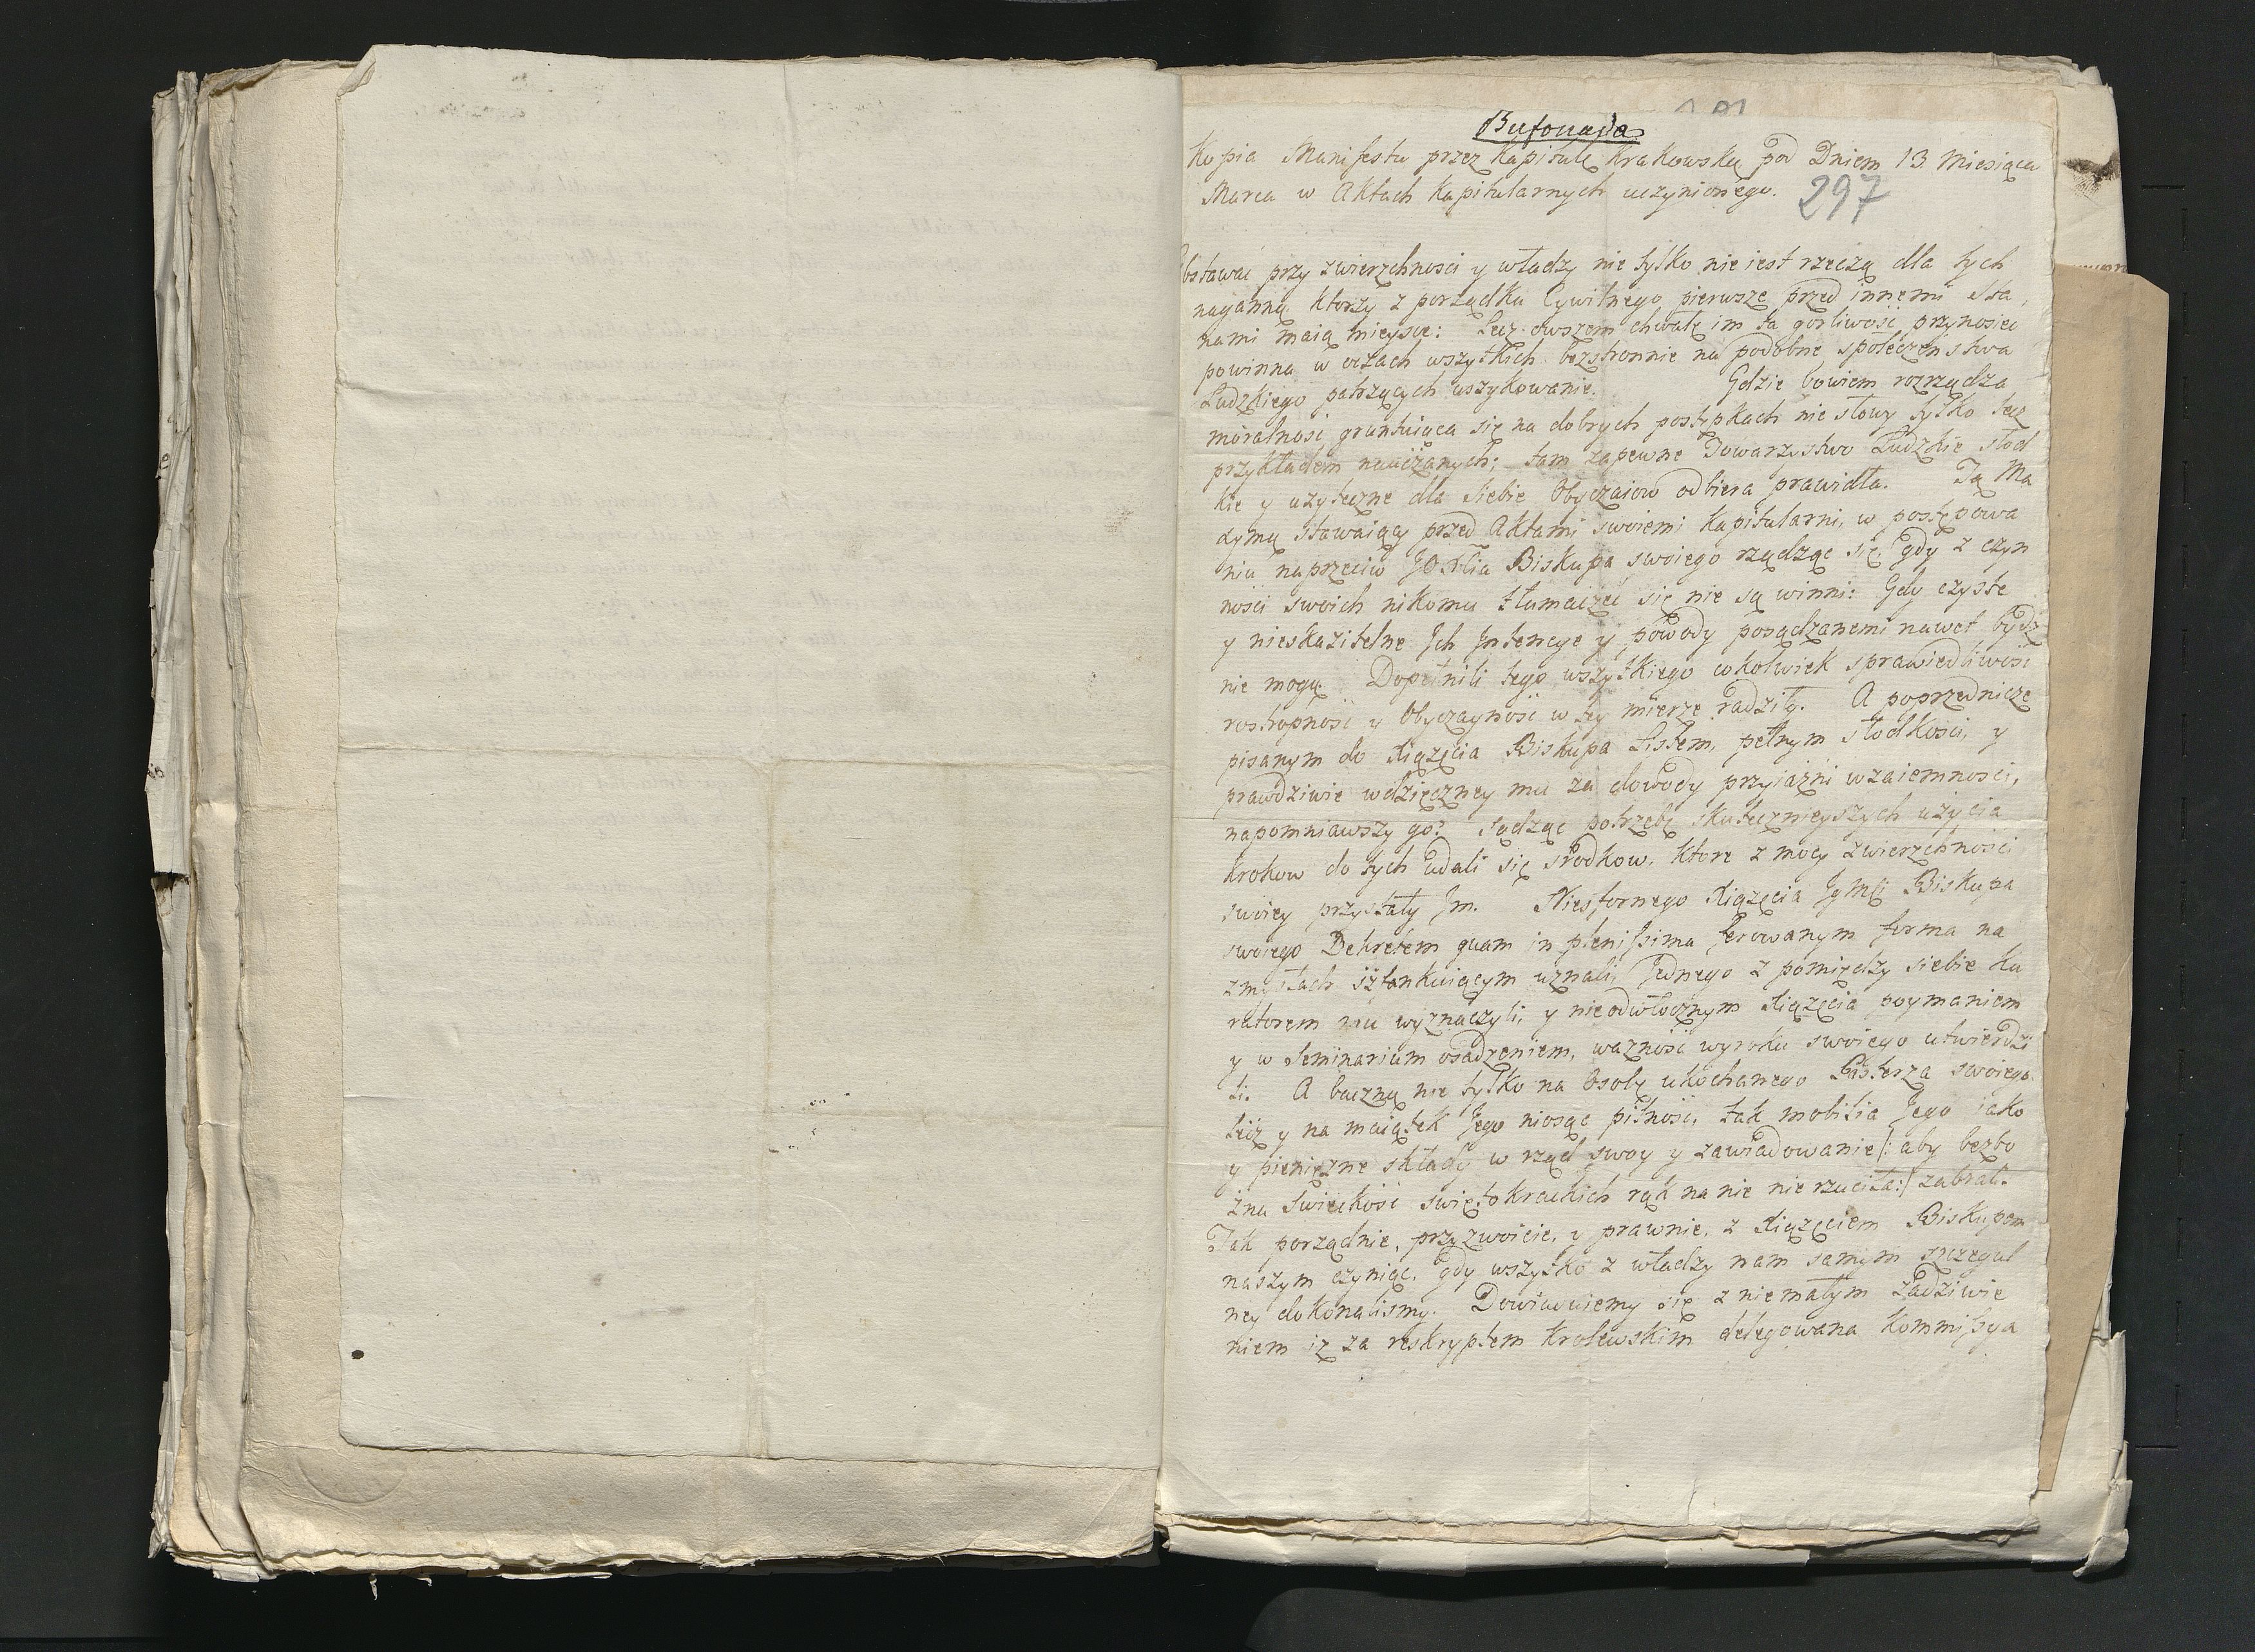 Bufonada
Kopia Manifestu przez Kapitułę Krakowską pod Dniem 13 Miesiąca
Marca w Aktach Kapitularnych uczynionego.
297
Obstawać przy zwierzchności y władzy nie tylko nie iest rzeczą dla tych
naganną, ktorzy z porządku Cywilnego pierwsze przed innemi Sta
nami maią mieysce: Lecz owszem chwałę im ta gorliwość przynosić
powinna w oczach wszytkich bezstronnie na podobne społeczenstwa
Ludzkiego patrzących uszykowanie. Gdzie bowiem rozrządza
moralność gruntuiąca się na dobrych postępkach nie słowy tylko lecz
przykładem nauczanych; tam zapewne Towarzystwo Ludzkie słod
kie y użyteczne dla siebie Obyczaiow odbiera prawidła. Tą Ma
xymą stawaiący przed Aktami swoiemi Kapitularni, w postępowa
niu naprzeciw Biskupa swoiego rządząc się, gdy z czyn
ności swoich nikomu tłumaczyć się nie są winni: Gdy czyste
y nieskazitelne Ich Intencye y powody posądzanemi nawet bydz
nie mogą. Dopełnili tego wszytkiego cokolwiek sprawiedliwość
rostropność y Obyczayność w tey mierze radziły. A poprzedniczo
pisanym do Xiążęcia Biskupa Listem, pełnym słodkości, y
prawdziwie wdzięczney mu za dowody przyiaźni wzaiemności,
napomniawszy go: sądząc potrzebę skutecznieyszych użycia
krokow do tych udali się środkow, ktore z mocy zwierzchności
swoiey przystały Im. Niesfornego Xiążęcia Jgmci Biskupa
swoiego Dekretem quam in plenissima ferowanym forma na
zmysłach szfankuiącym uznali, Jednego z pomiędzy siebie Ku
ratorem mu wyznaczyli, y nieodwłocznym Xiążęcia poymaniem
y w Seminarium osadzeniem, ważność wyroku swoiego utwierdzi
li. A baczną nie tylko na Osobę ukochanego Pasterza swoiego
lecz y na maiątek Jego niosąc pilność, tak mobilia Jego iako
y pieniężne składy w rząd swoy y zawiadowanie /: aby bezbo
żna Swieckość swiętokrackich rąk na nie nie rzuciła :/ zabrali.
Tak porządnie, przyzwoicie, y prawnie, z Xiążęciem Biskupem
naszym czyniąc, gdy wszytko z władzy nam samym szczegul
ney dokonalismy. Dowiaduiemy się z niemałym zadziwie
niem iż za reskryptem Krolewskim delegowana Kommissya